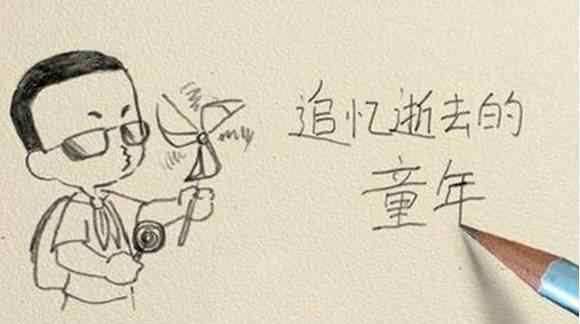 追忆逝去的
童年